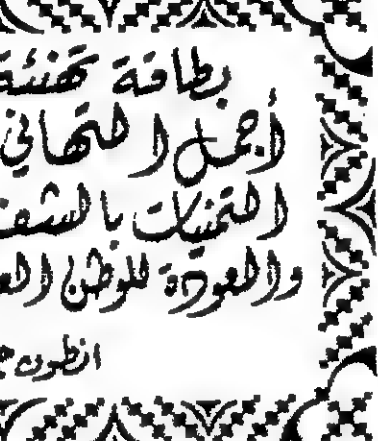 بطاقة تهنئة
أجمل التهاني
التمنيات بالشفـ
والعودة للوطن الع
انطون